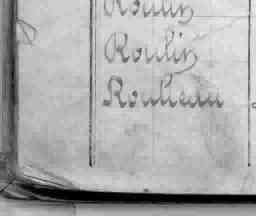 Roulin
Roulin
Roulleau